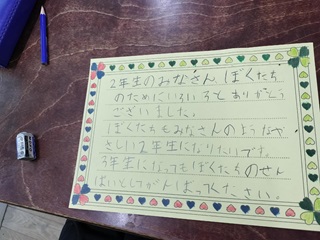 2年生のみなさん、ぼくたち
のためにいろいろとありがとう
ございました。
ぼくたちもみなさんのようなや
さしい2年生になりたいです。
3年生になってもぼくたちのせん
ぱいとしてがんばってください。